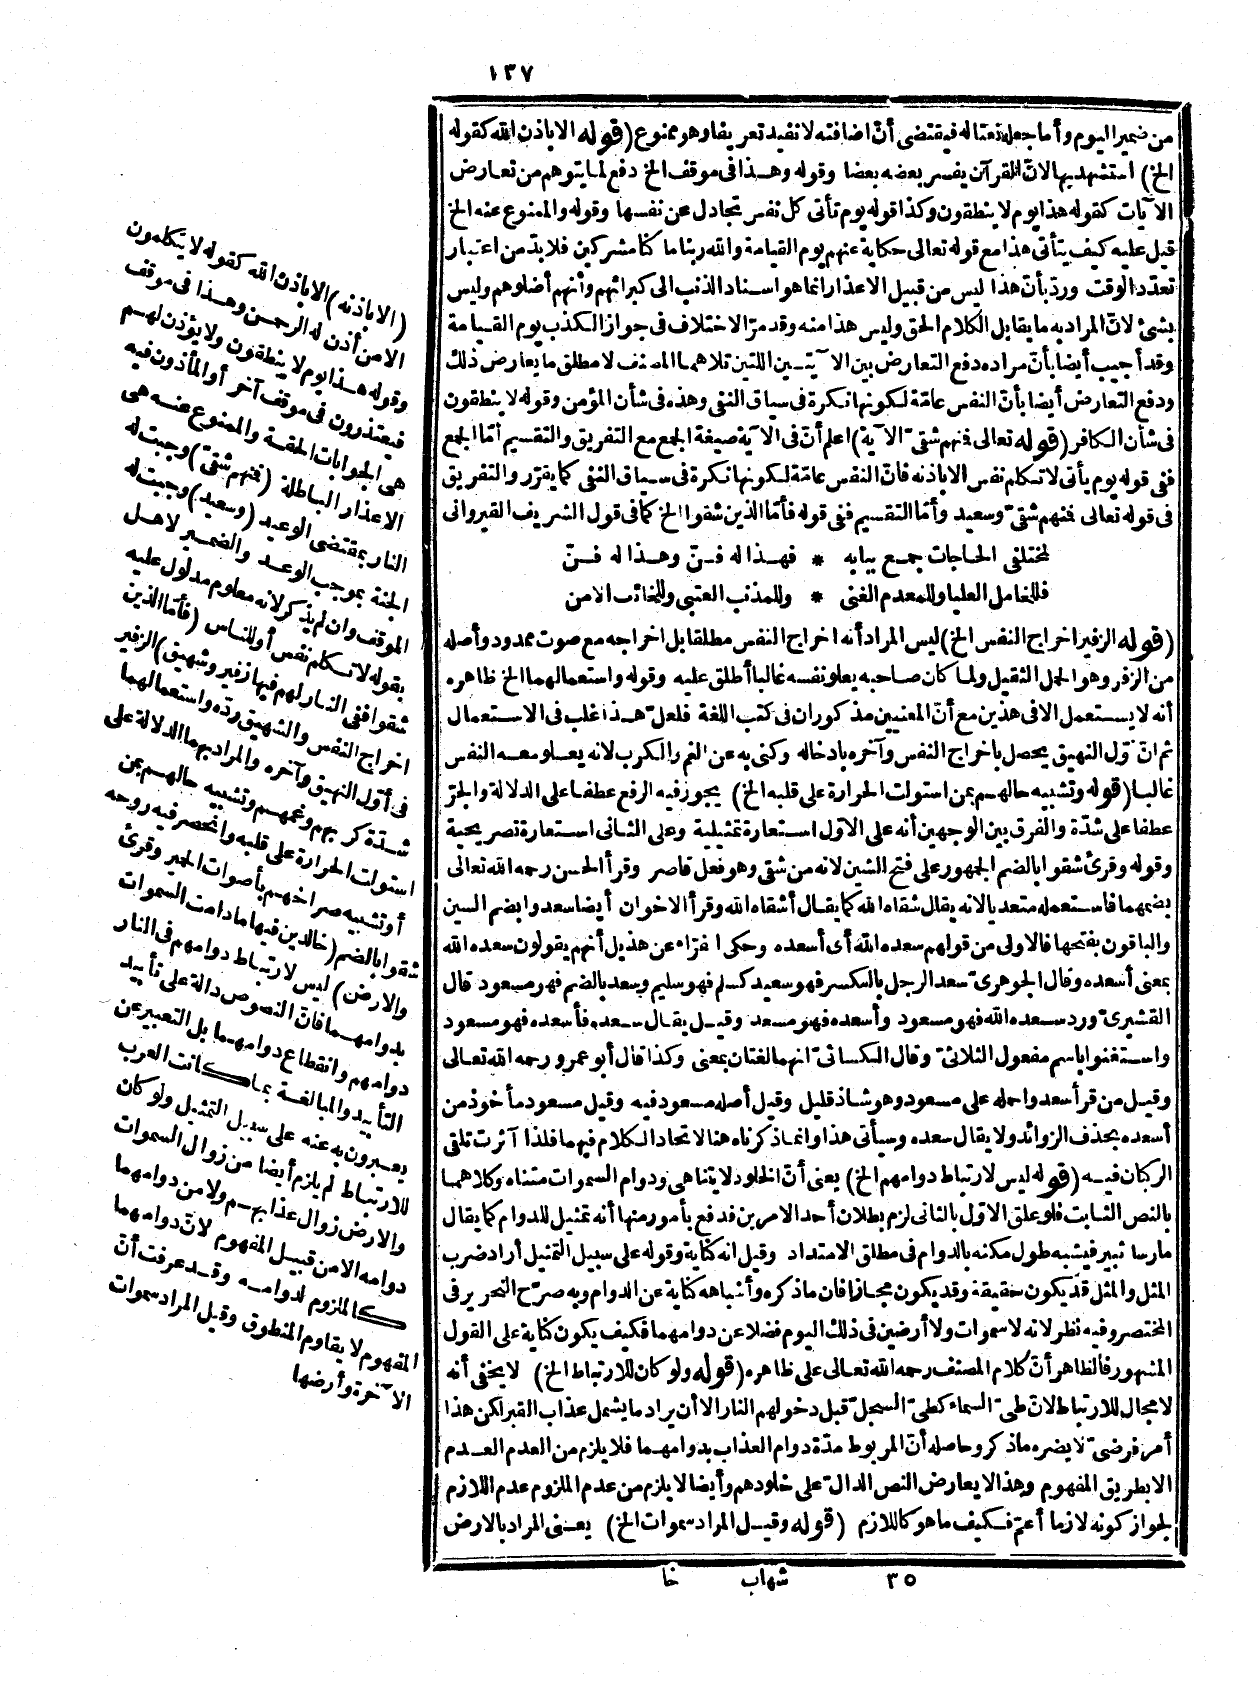 ١٣٧
من ضمير اليوم وأما جعله نعتا له فيقتضى أنّ اضافته لا تفيد تعريفا وهو ممنوع (قوله الا باذن الله كقوله
الخ) استشهد بها لانّ القرآن يفسر بعضه بعضا وقوله وهذا فى موقف الخ دفع لما يتوهم من تعارض
الآيات كقوله هذا يوم لا ينطقون وكذا قوله يوم تأتى كل نفس تجادل عن نفسها وقوله والممنوع عنه الخ
قيل عليه كيف يتأتى هذا مع قوله تعالى حكاية عنهم يوم القيامة والله ربنا ما كنا مشركين فلا بدّ من اعتبار
تعدّد الوقت وردّ بأنّ هذا ليس من قبيل الاعذار انما هو اسناد الذنب الى كبرائهم وأنهم أضلوهم وليس
بشئ لانّ المراد به ما يقابل الكلام الحق وليس هذا منه وقد مرّ الاختلاف فى جواز الكذب يوم القيامة
وقد أجيب أيضا بأنّ مراده دفع التعارض بين الآيتين اللتين تلاهما المصنف لا مطلق ما يعارض ذلك
ودفع التعارض أيضا بأنّ النفس عامّة لكونها نكرة فى سياق النفى وهذه فى شأن المؤمن وقوله لا ينطقون
فى شأن الكافر (قوله تعالى فمنهم شقىّ الآية) اعلم أنّ فى الآية صيغة الجمع مع التفريق والتقسيم أمّا الجمع
ففى قوله يوم يأتى لا تكلم نفس الا باذنه فانّ النفس عامّة لكونها نكرة فى سياق النفى كما يقرّر والتفريق
فى قوله تعالى فمنهم شقىّ وسعيد وأمّا التقسيم ففى قوله فأمّا الذين شقوا الخ كما فى قول الشريف القيروانى
لمختلفى الحاجات جمع ببابه * فهذا له فنّ وهذا له فنّ
فللخامل العليا وللمعدم الغنى * وللمذنب العتبى وللخائف الامن
(قوله الزفير اخراج النفس الخ) ليس المراد أنه اخراج النفس مطلقا بل اخراجه مع صوت ممدود وأصله
من الزفر وهو الحمل الثقيل ولما كان صاحبه يعلو نفسه غالبا أطلق عليه وقوله واستعمالهما الخ ظاهره
أنه لا يستعمل الا فى هذين مع أنّ المعنيين مذكوران فى كتب اللغة فلعلّ هذا غلب فى الاستعمال
ثم انّ أول النهيق يحصل باخراج النفس وآخره بادخاله وكنى به عن الغم والكرب لانه يعلو معه النفس
غالبا (قوله وتشبيه حالهم بمن استولت الحرارة على قلبه الخ) يجوز فيه الرفع عطفا على الدلالة والجرّ
عطفا على شدّة والفرق بين الوجهين أنه على الاوّل استعارة تمثيلية وعلى الثانى استعارة تصريحية
وقوله وقرئ شقوا بالضم الجمهور على فتح الشين لانه من شقى وهو فعل قاصر وقرأ الحسن رحمه الله تعالى
بضمهما فاستعمله متعديا لانه يقال شقاه الله كما يقال أشقاه الله وقرأ الاخوان أيضا سعدوا بضم السين
والباقون بفتحها فالاولى من قولهم سعده الله أى أسعده وحكى الفرّاء عن هذيل أنهم يقولون سعده الله
بمعنى أسعده وقال الجوهرىّ سعد الرجل بالكسر فهو سعيد كسلم فهو سليم وسعد بالضم فهو مسعود قال
القشيرىّ ورد سعده الله فهو مسعود وأسعده فهو مسعد وقيل يقال سعده فأسعده فهو مسعود
واستغنوا باسم مفعول الثلاثىّ وقال الكسائىّ انهما لغتان بمعنى وكذا قال أبو عمرو رحمه الله تعالى
وقيل من قرأ سعدوا حمله على مسعود وهو شاذ قليل وقيل أصله مسعود فيه وقيل مسعود مأخوذ من
أسعده بحذف الزوائد ولا يقال سعده وسيأتى هذا وانما ذكرناه هنا لاتحاد الكلام فيهما فلذا آثرت تلقى
الركبان فيه (قوله ليس لارتباط دوامهم الخ) يعنى أنّ الخلود لا يتناهى ودوام السموات متناه وكلاهما
بالنص الثابت فلو علق الاوّل بالثانى لزم بطلان أحد الامرين فدفع بأمور منها أنه تمثيل للدوام كما يقال
ما رسا ثبير فيشبه طول مكثه بالدوام فى مطلق الامتداد وقيل انه كناية وقوله على سبيل التمثيل أراد ضرب
المثل والمثل قد يكون حقيقة وقد يكون مجازا فان ما ذكره وأشباهه كناية عن الدوام وبه صرّح النحرير فى
المختصر وفيه نظر لانه لا سموات ولا أرضين فى ذلك اليوم فضلا عن دوامهما فكيف يكون كناية على القول
المشهور فالظاهر أنّ كلام المصنف رحمه الله تعالى على ظاهره (قوله ولو كان للارتباط الخ) لا يخفى أنه
لا مجال للارتباط لانّ طىّ السماء كطىّ السجلّ قبل دخولهم النار الا أن يراد ما يشمل عذاب القبر لكن هذا
أمر فرضىّ لا يضره ما ذكر وحاصله أنّ المربوط مدّة دوام العذاب بدوامهما فلا يلزم من العدم العدم
الا بطريق المفهوم وهذا لا يعارض النص الدالّ على خلودهم وأيضا لا يلزم من عدم الملزوم عدم اللازم
لجواز كونه لازما أعمّ فكيف ما هو كاللازم (قوله وقيل المراد سموات الخ) يعنى المراد بالارض
٣٥ شهاب خا
(الا باذنه) الا باذن الله كقوله لا يتكلمون
الا من أذن له الرحمن وهذا فى موقف
وقوله هذا يوم لا ينطقون ولا يؤذن لهم
فيعتذرون فى موقف آخر أو المأذون فيه
هى الجوابات الحقة والممنوع عنه هى
الاعذار الباطلة (فمنهم شقىّ) وجبت له
النار بمقتضى الوعيد (وسعيد) وجبت له
الجنة بموجب الوعد والضمير لاهل
الموقف وان لم يذكر لانه معلوم مدلول عليه
بقوله لا تكلم نفس أو للناس (فأمّا الذين
شقوا ففى النار لهم فيها زفير وشهيق) الزفير
اخراج النفس والشهيق ردّه واستعمالهما
فى أوّل النهيق وآخره والمراد بهما الدلالة على
شدّة كربهم وغمهم وتشبيه حالهم بمن
استولت الحرارة على قلبه وانحصر فيه روحه
أو تشبيه صراخهم بأصوات الحمير وقرئ
شقوا بالضم (خالدين فيها ما دامت السموات
والارض) ليس لارتباط دوامهم فى النار
بدوامهما فانّ النصوص دالة على تأبيد
دوامهم وانقطاع دوامهما بل التعبير عن
التأبيد والمبالغة بما كانت العرب
يعبرون به عنه على سبيل التمثيل ولو كان
للارتباط لم يلزم أيضا من زوال السموات
والارض زوال عذابهم ولا من دوامهما
دوامه الا من قبيل المفهوم لانّ دوامهما
كالملزوم لدوامه وقد عرفت أنّ
المفهوم لا يقاوم المنطوق وقيل المراد سموات
الآخرة وأرضها